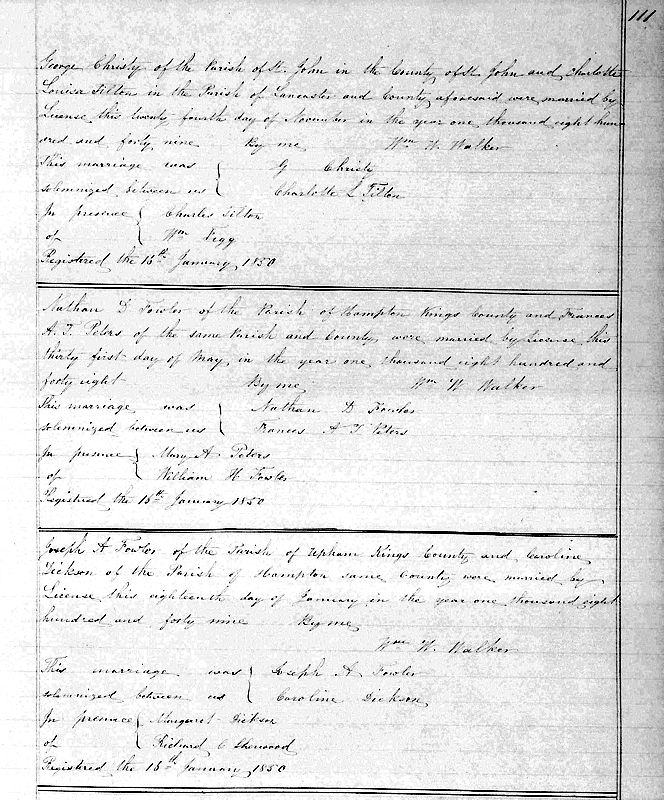 111
George Christy of the Parish of St. John in the County of St John and Charlotte
Louisa Tilton in the Parish of Lancaster and County aforesaid were married by
License this twenty fourth day of November in the year one thousand eight hun
dred and forty nine By me Wm W. Walker
This marriage was { G Christy
solemnized between us { Charlotte L Tilton
In presence { Charles Tilton
of { Wm Fegg
Registered the 15th January 1850
Nathan D Fowler of the Parish of Hampton Kings County and Frances
A. T. Peters of the same Parish and County, were married by License this
thirty first day of May, in the year one thousand eight hundred and
forty eight By me Wm W. Walker
This marriage was { Nathan D Fowler
solemnized between us { Frances A T Peters
In presence { Mary A Peters
of { William H Fowler
Registered the 15th January 1850
Joseph A Fowler of the Parish of Upham Kings County and Caroline
Dickson of the Parish of Hampton same County were married by
License this eighteenth day of January in the year one thousand eight
hundred and forty nine By me
Wm W. Walker
This marriage was { Joseph A Fowler
solemnized between us { Caroline Dickson
In presence { Margaret Dickson
of { Richard C Sherwood
Registered the 15th January 1850